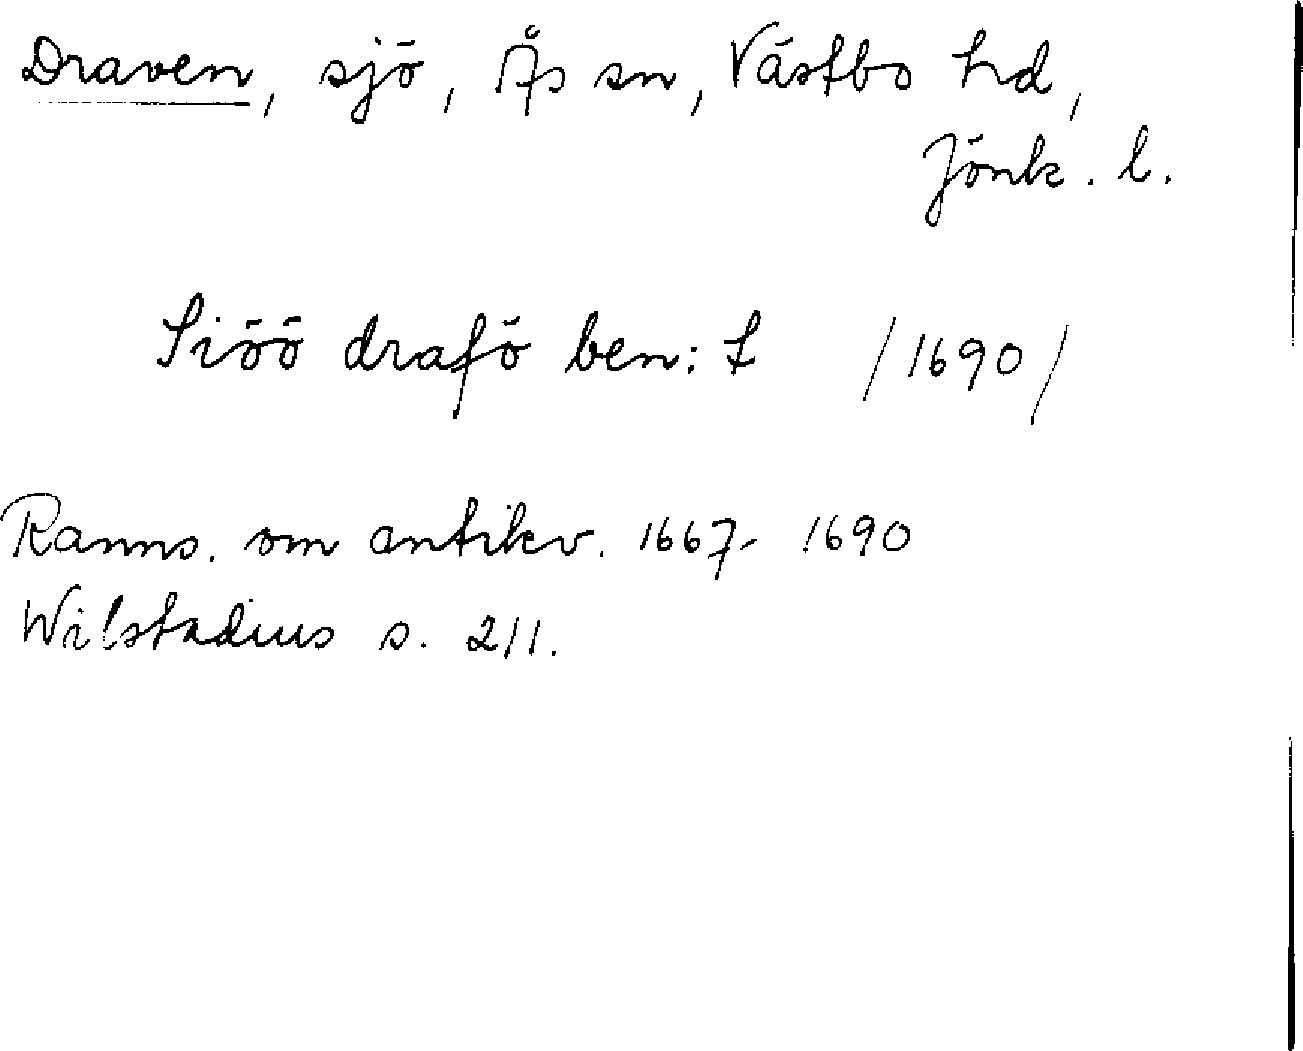 Draven, sjö, Ås sn, Västbo hd,
Jönk. l.
Siöö drafö ben: t /1690/
Ranns. om antikv. 1667-1690
Wilstadius s. 211.